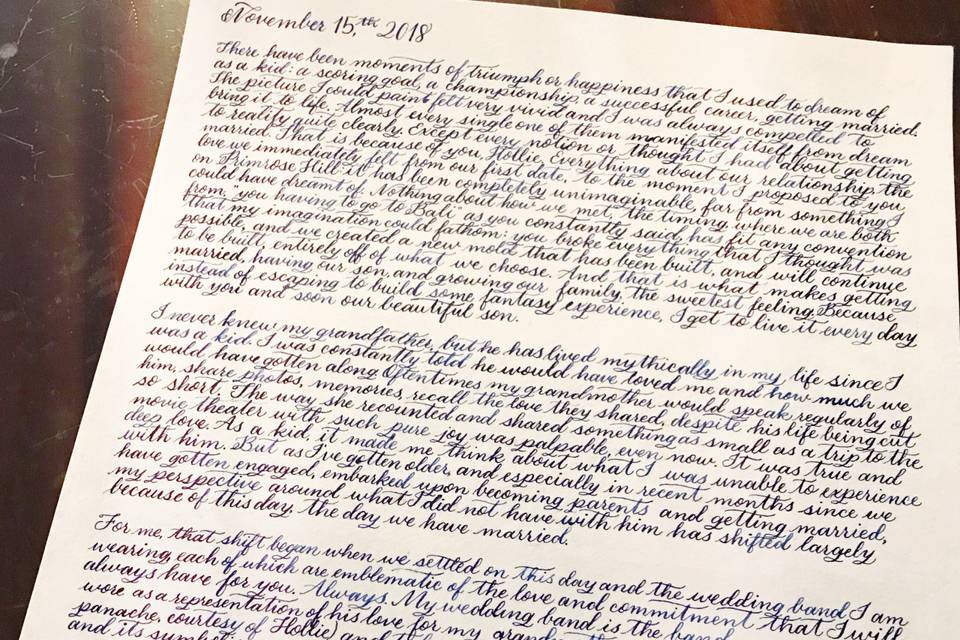 November 15,th 2018
There have been moments of triumph or happiness that I used to dream of
as a kid: a scoring goal, a championship, a successful career, getting married.
The picture I could paint felt very vivid and I was always competed to
bring it to life. Almost every single one of them manifested itself from dream
to reality quite clearly. Except every notion or thought I had about getting
married. That is because of you, Hollie. Everything about our relationship, the
love we immediately felt from our first date, to the moment I proposed to you
on Primrose Hill it has been completely unimaginable, far from something I
could have dreamt of. Nothing about how we met, the timing, where we are both
from, "you having to go to Bali" as you constantly said, has fit any convention
that my imagination could fathom: you broke everything that I thought was
possible, and we created a new mold that has been built, and will continue
to be built, entirely off of what we choose. And that is what makes getting
married, having our son, and growing our family, the sweetest feeling. Because
instead of escaping to build some fantasy experience, I get to live it every day
with you and soon our beautiful son.
I never knew my grandfather, but he has lived mythically in my life since I
was a kid. I was constantly told he would have loved me and how much we
would have gotten along. Oftentimes my grandmother would speak regularly of
him, share photos, memories, recall the love they shared, despite his life being cut
so short. The way she recounted and shared something as small as a trip to the
movie theater with such pure joy was palpable, even now. It was true and
deep love. As a kid, it made me think about what I was unable to experience
with him. But as I've gotten older, and especially in recent months since we
have gotten engaged, embarked upon becoming parents and getting married,
my perspective around what I did not have with him has shifted largely
because of this day, the day we have married.
For me, that shift began when we settled on this day and the wedding band I am
wearing, each of which are emblematic of the love and commitment that I will
always have for you. Always. My wedding band is the band
wore as a representation of his love for my
panache, courtesy of Hollie) and
and its